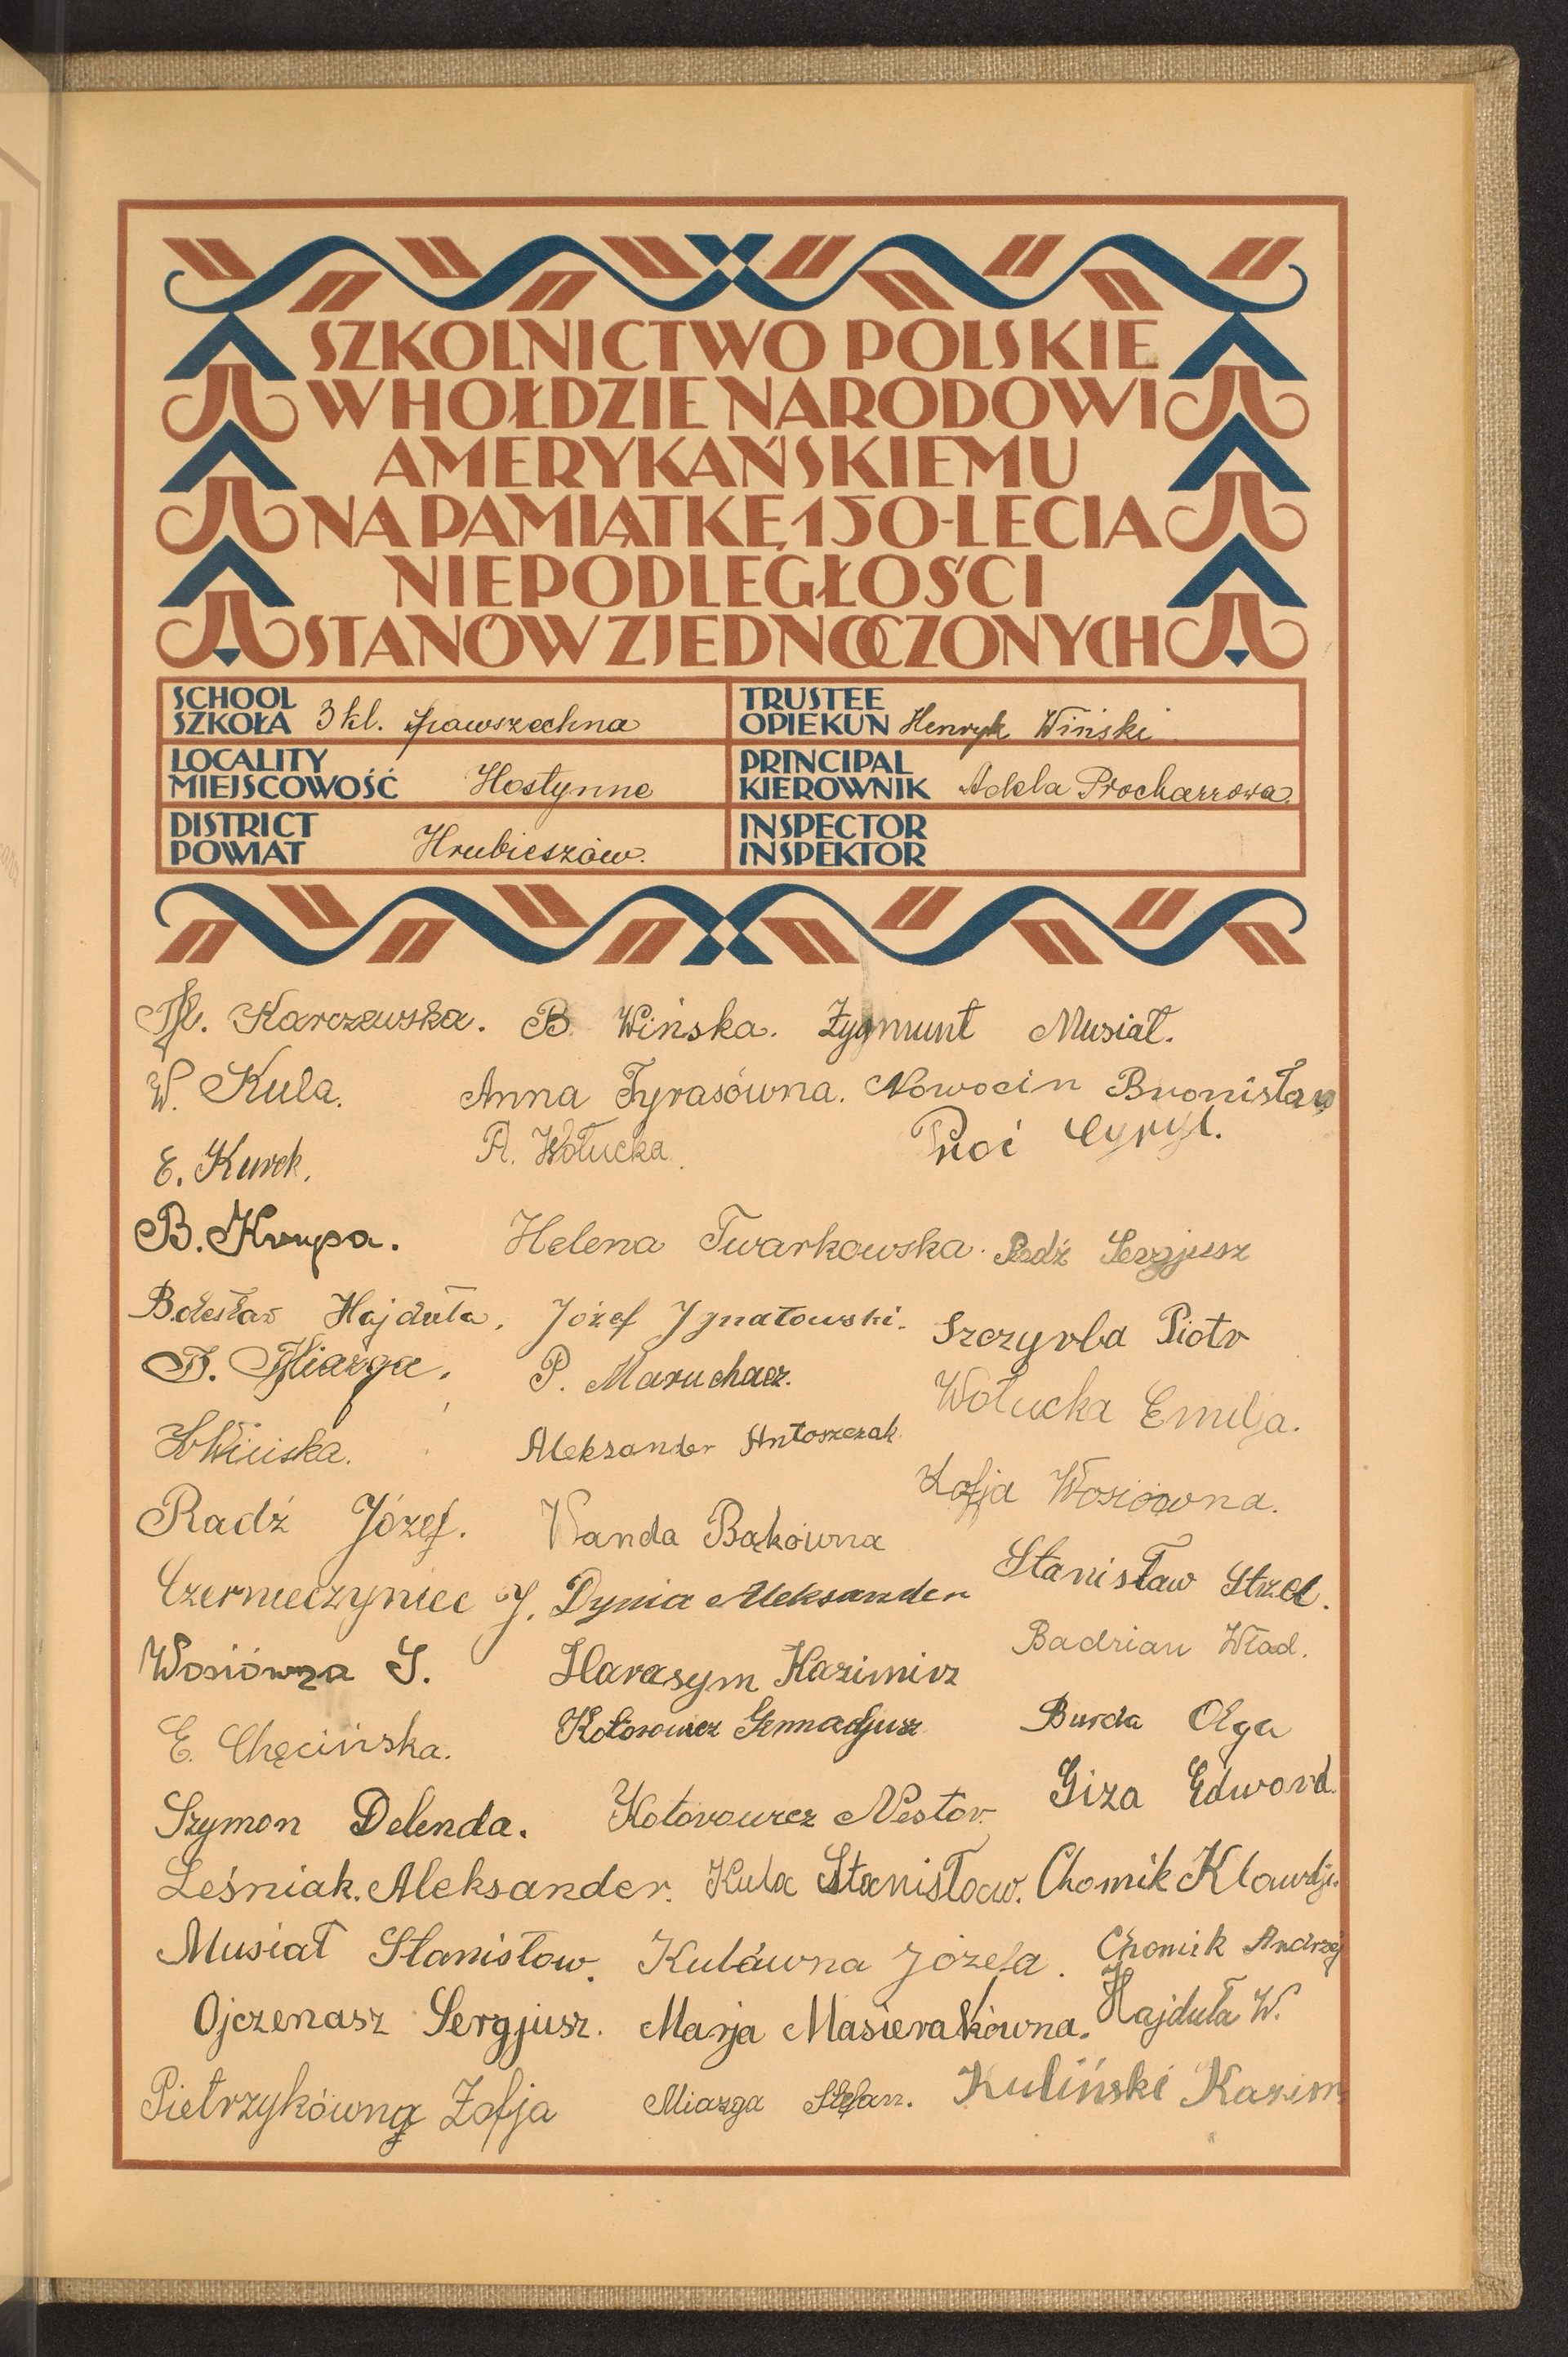 SZKOLNICTWO POLSKIE
W HOŁDZIE NARODOWI
AMERYKAŃSKIEMU
NA PAMIĄTKĘ 150-LECIA
NIEPODLEGŁOŚCI
STANÓW ZJEDNOCZONYCH
SCHOOL
SZKOŁA 3 kl. powszechna
TRUSTEE
OPIEKUN Henryk Wiński
LOCALITY
MIEJSCOWOŚĆ Hostynne
PRINCIPAL
KIEROWNIK Adela
DISTRICT
POWIAT Hrubieszów.
INSPECTOR
INSPEKTOR
Karczewska. B. Wińska. Zygmunt Musiał.
W. Kula. Anna Tyrasówna. Nowocin Bronisław
E. Kurek. A. Wołucka Cyryl.
B. Krupa. Helena Twarkowska. Radź Sergjusz
Bolesław Hajduła. Józef Ignatowski. Szczyrba Piotr
Miazga. P. Maruchacz. Wołucka Emilja.
Wińska. Aleksander Antoszczak.
Zofja Wosiówna.
Radź Józef. Wanda Bąkówna
Stanisław Strzel.
Czernieczyniec J. Dynia Aleksander
Badzian Wład.
Wosiówna S. Harasym Kazimirz
E. Chęcińska. Kotorowicz Gennadjusz Burda Olga
Szymon Delenda. Kotorowicz Nestor. Giza Edward.
Leśniak. Aleksander. Kula Stanisław. Chomik Klawdj.
Musiał Stanisław. Kulówna Józefa. Chomik Andrzej
Ojczenasz Sergjusz. Marja Masierakówna. Hajduła W.
Pietrzykówna Zofja Miazga Stefan. Kuliński Kazim.